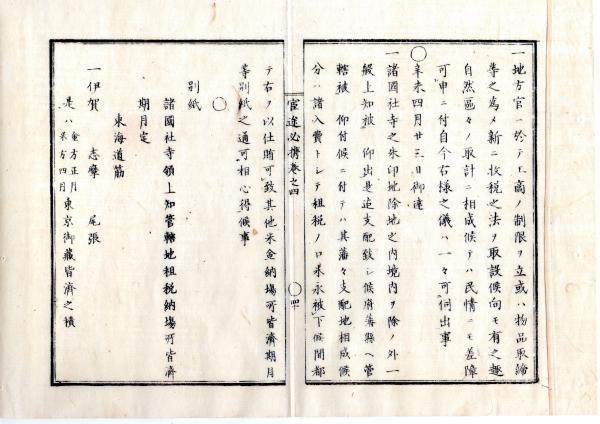 一地方官ニ於テ工商ノ制限ヲ立或ハ物品取締
等之為メ新ニ收税之法ヲ取設候向モ有之趣
自然區々ノ取計ニ相成候テハ民情ニモ差障
可申ニ付自今右様之儀ハ一々可伺出事
○
辛未四月廿三日御達
一諸國社寺之朱印地除地之内境内ヲ除ノ外一
般上知被 仰出是迄支配致シ候府藩縣ヘ管
轄被 仰付候ニ付テハ其藩々支配地相成候
分ハ諸入費トシテ租税ノ口米永被下候間都
宦途必携巻之四 ○四十
テ右ノ以仕賄可致其他米金納場所皆濟期月
等別紙之通可相心得候事
○
別紙
諸國社寺領上知管轄地租税納場所皆濟
期月定
東海道筋
一伊賀 志摩 尾張
是ハ金方正月米方四月東京御藏皆濟之積